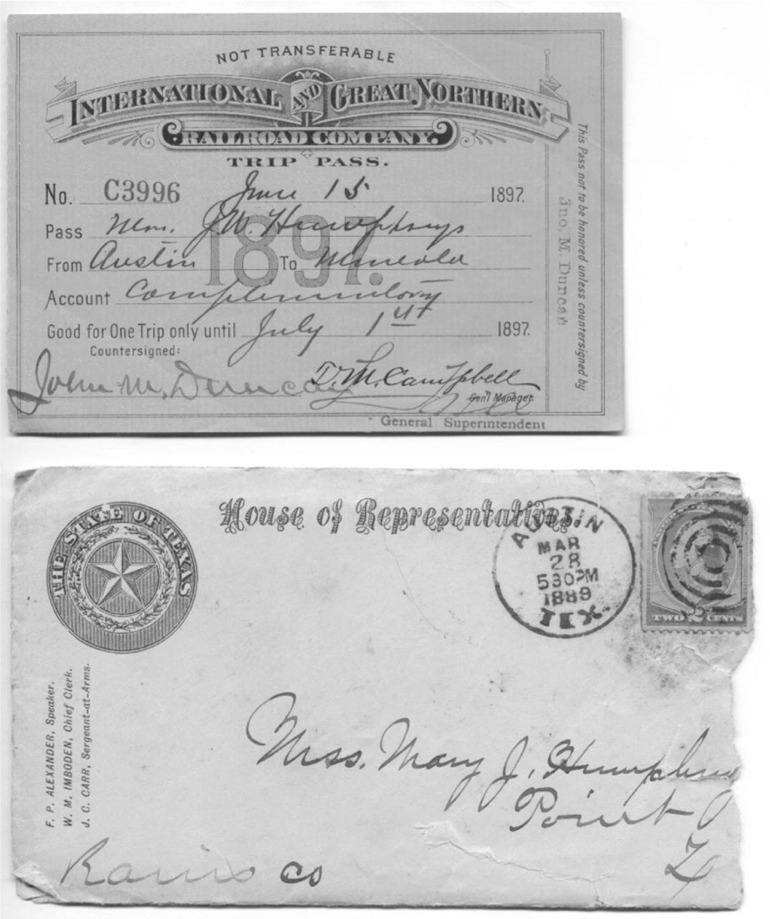 NOT TRANSFERABLE
INTERNATIONAL AND GREAT NORTHERN
RAILROAD COMPANY.
TRIP PASS.
No. C3996 June 15 1897.
Pass J.W. Humphreys
1897.
From Austin To Mineola
Account Complimentary
Good for One Trip only until July 1st 1897.
Countersigned:
John M. Duncan T.M. Campbell
Gen'l Manager.
General Superintendent
This Pass not to be honored unless countersigned by
Jno. M. Duncan
House of Representatives.
THE STATE OF TEXAS
AUSTIN
MAR
28
530PM
1889
TEX.
TWO 2 CENTS
F. P. ALEXANDER, Speaker.
W. M. IMBODEN, Chief Clerk.
J. C. CARR, Sergeant-at-Arms.
Miss. Mary J. Humphrey
Point
Rains co